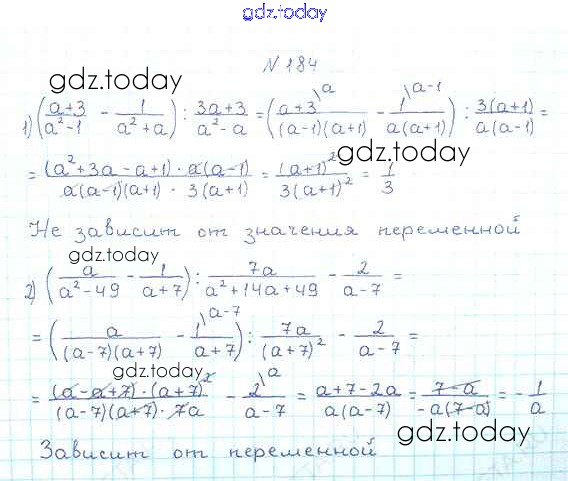 gdz.today
N 184
gdz.today
1) ((a+3)/(a²-1) - 1/(a²+a)) : (3a+3)/(a²-a) = ((a+3)/((a-1)(a+1)) \a - 1/(a(a+1)) \a-1) : 3(a+1)/(a(a-1)) =
gdz.today
= ((a²+3a-a+1)·a(a-1))/(a(a-1)(a+1)·3(a+1)) = (a+1)²/(3(a+1)²) = 1/3
Не зависит от значения переменной
gdz.today
2) (a/(a²-49) - 1/(a+7)) : 7a/(a²+14a+49) - 2/(a-7) =
= (a/((a-7)(a+7)) - 1/(a+7) \a-7) : 7a/(a+7)² - 2/(a-7) =
gdz.today
= ((a-a+7)·(a+7)²)/((a-7)(a+7)·7a) - 2/(a-7) \a = (a+7-2a)/(a(a-7)) = (7-a)/(-a(7-a)) = -1/a
gdz.today
Зависит от переменной